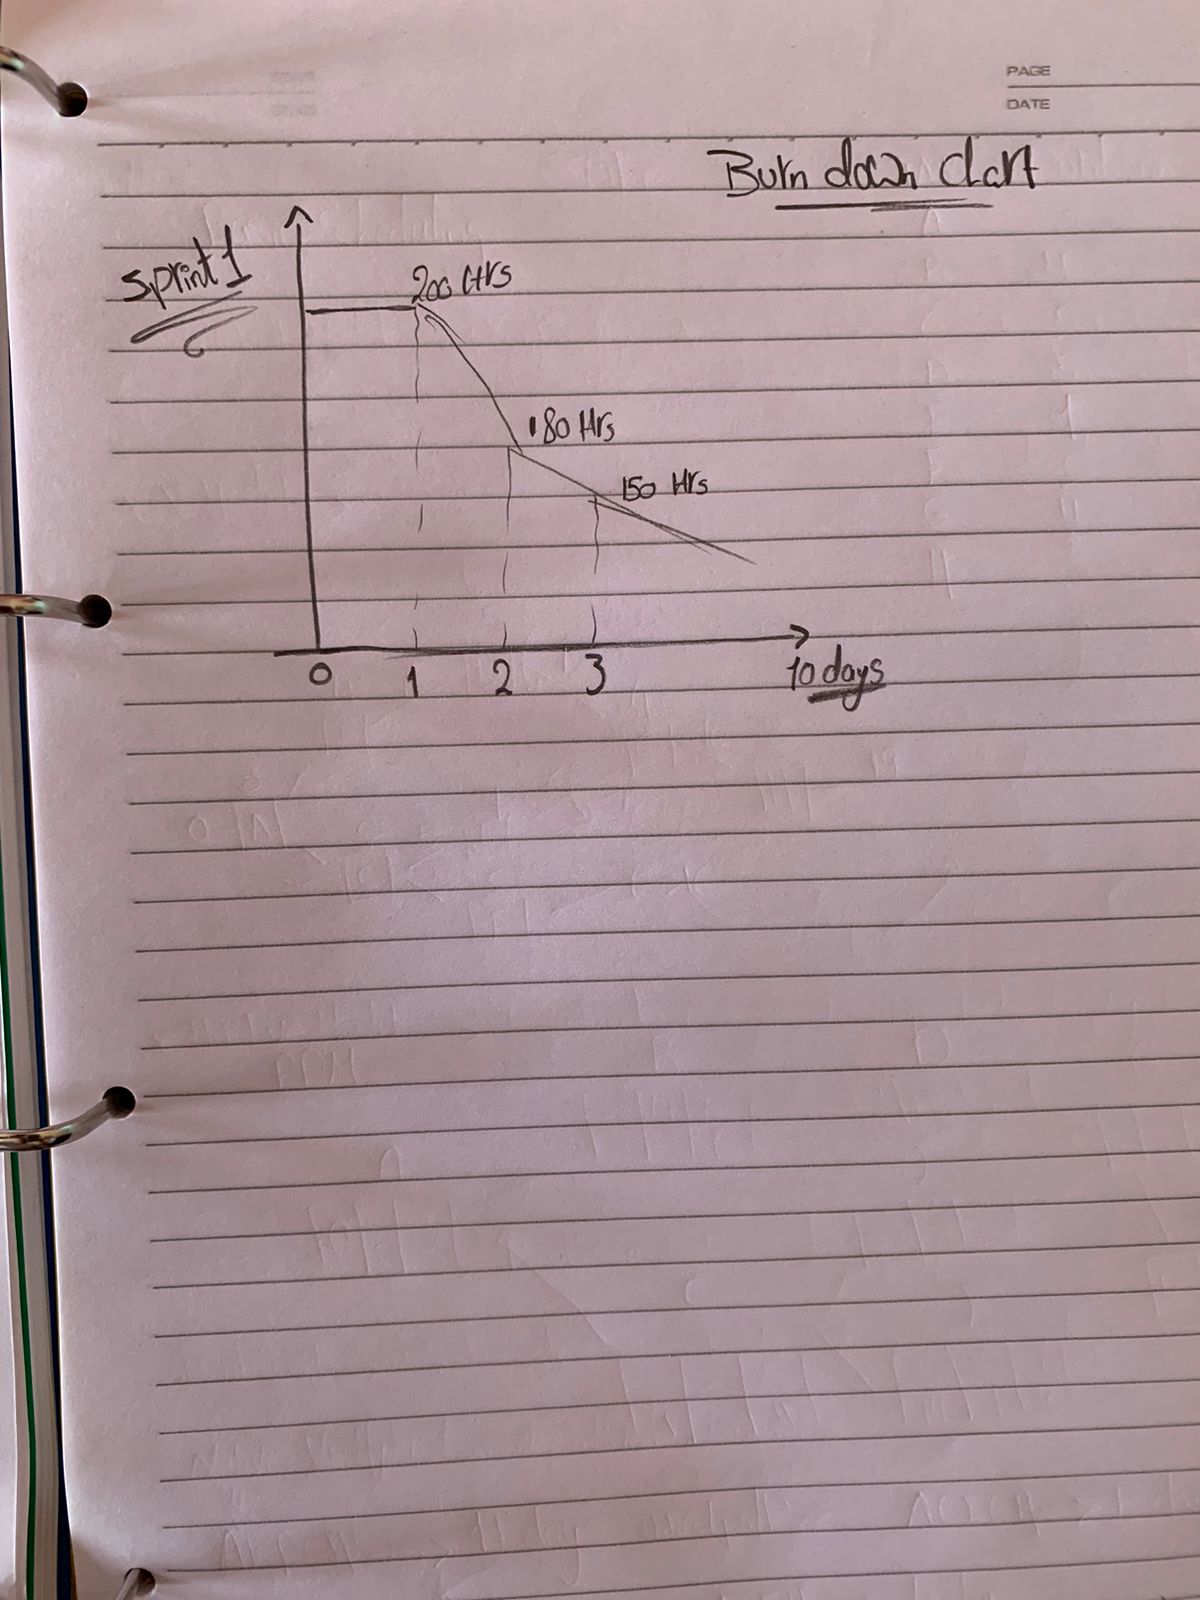 PAGE
DATE
Burn down chart
Sprint 1
200 Hrs
180 Hrs
150 Hrs
0 1 2 3 10 days